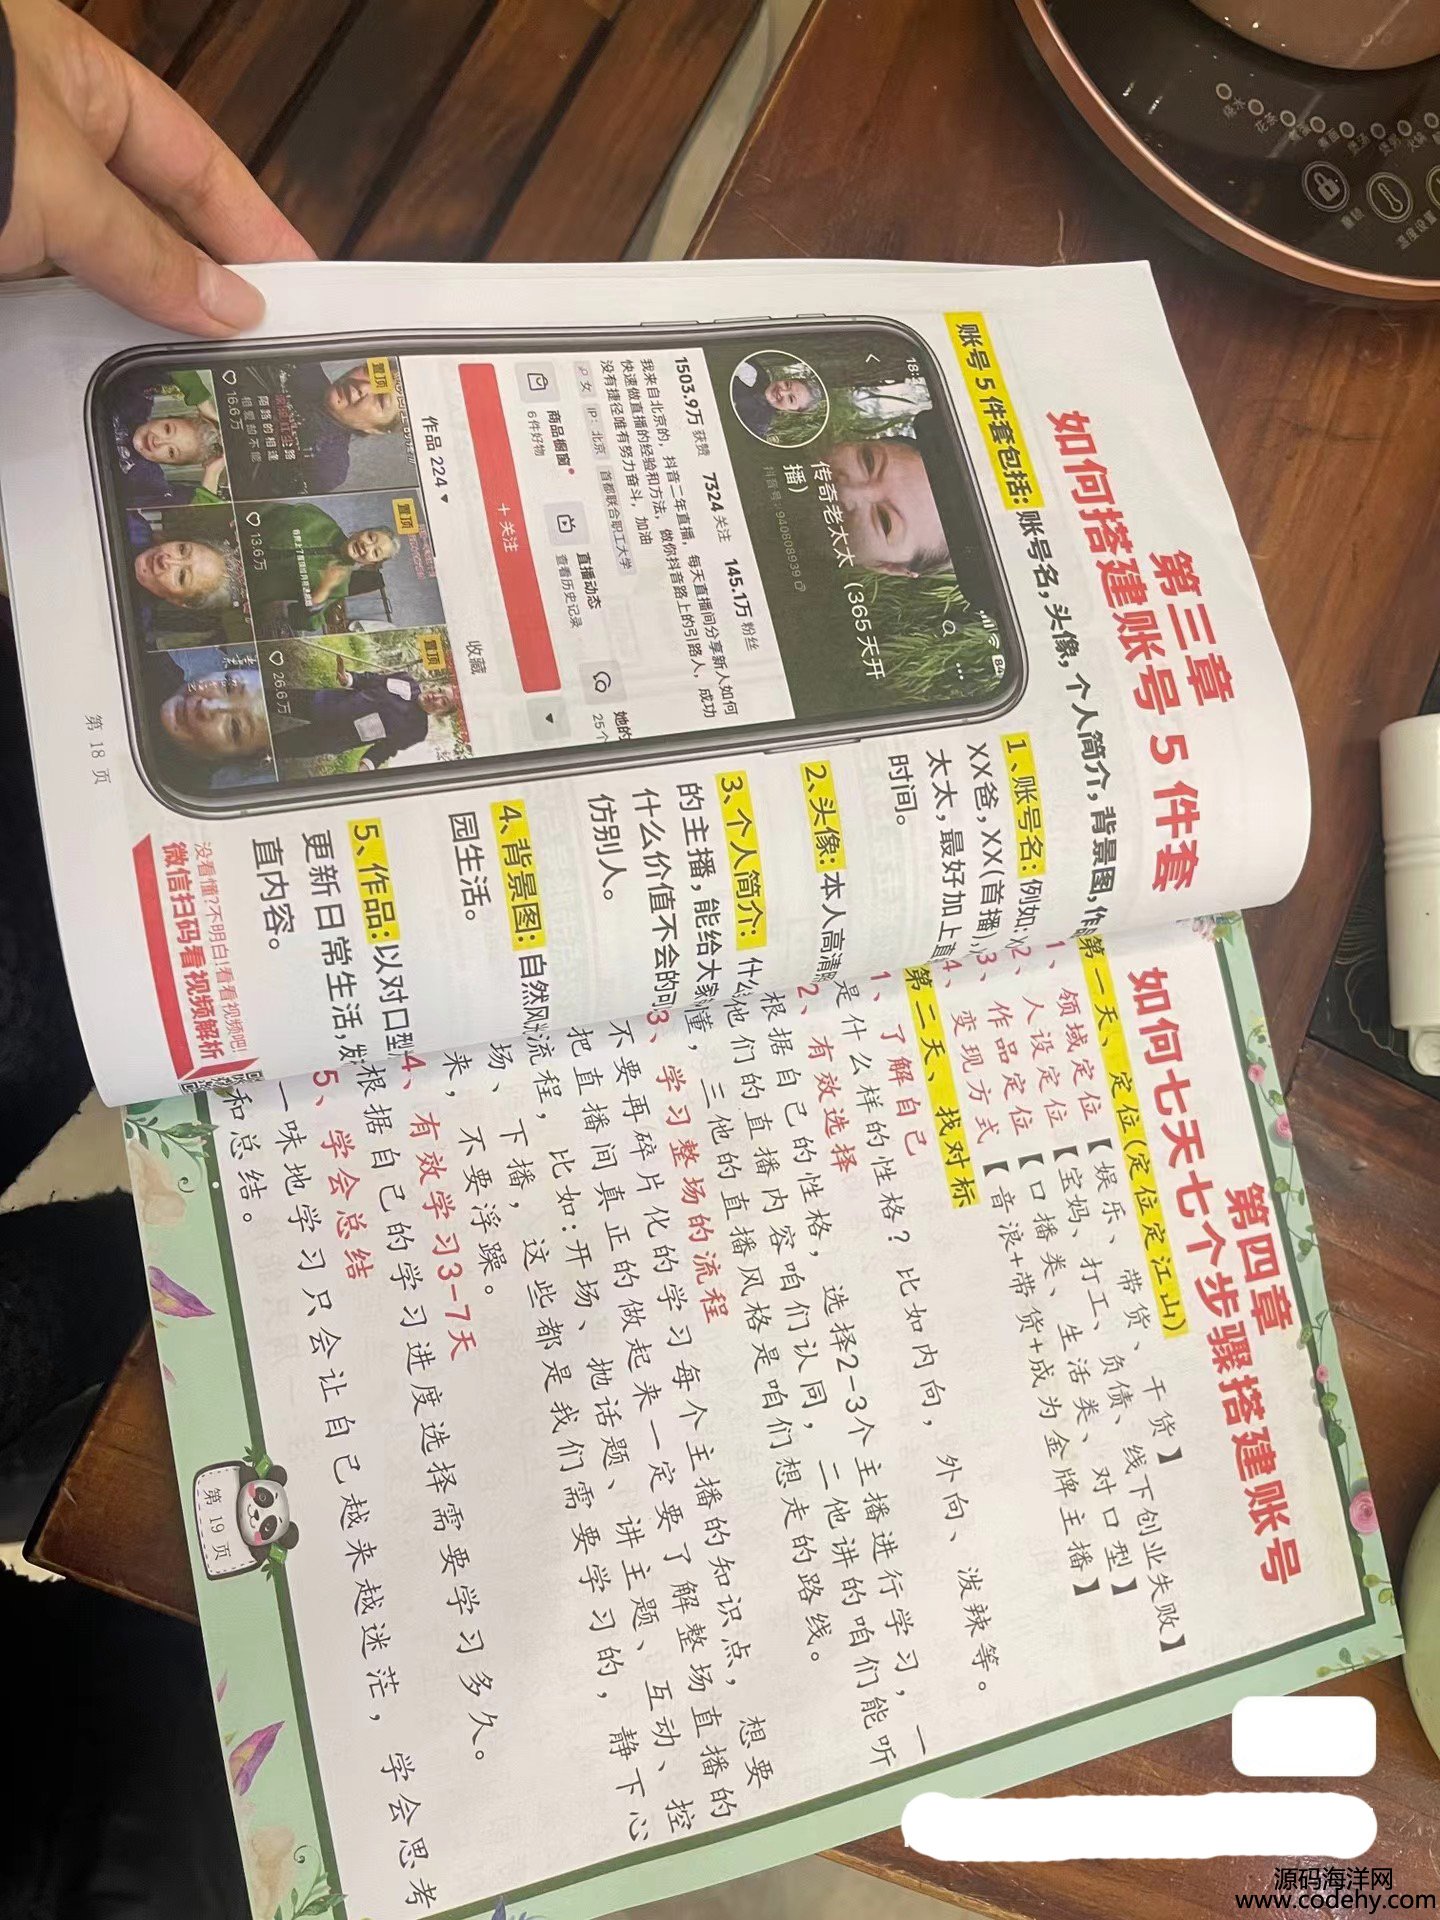 第三章
如何搭建账号 5 件套
账号 5 件套包括:账号名,头像,个人简介,背景图,作
18:
84
传奇老太太（365天开
播）
抖音号: 940808939
1503.9万 获赞 7324 关注 145.1万 粉丝
我来自北京的，抖音二年直播，每天直播间分享新人如何
快速做直播的经验和方法，做你抖音路上的引路人，成功
没有捷径唯有努力奋斗，加油
女 IP: 北京 首都联合职工大学
商品橱窗 直播动态 她的
6件好物 查看历史记录 25个
+ 关注
作品 224 收藏
置顶 置顶 置顶
陌路的相逢
相爱却不能
16.6万 13.6万 26.6万
1、账号名: 例如:
XX爸, XX(首播),
太太, 最好加上直
时间。
2、头像:本人高清
3、个人简介: 什么
的主播, 能给大家
什么价值不会的可
仿别人。
4、背景图: 自然风
园生活。
5、作品:以对口型
更新日常生活,发
直内容。
没看懂?不明白!看看视频吧!
微信扫码看视频解析
第 18 页
第四章
如何七天七个步骤搭建账号
第一天、定位(定位定江山)
1、领域定位【娱乐、带货、干货】
2、人设定位【宝妈、打工、负债、线下创业失败】
3、作品定位【口播类、生活类、对口型】
4、变现方式【音浪+带货+成为金牌主播】
第二天、找对标
1、了解自己
是什么样的性格? 比如内向, 外向、泼辣等。
2、有效选择
根据自己的性格, 选择2-3个主播进行学习, 一
他们的直播内容咱们认同, 二他讲的咱们能听
懂, 三他的直播风格是咱们想走的路线。
3、学习整场的流程
不要再碎片化的学习每个主播的知识点, 想要
把直播间真正的做起来一定要了解整场直播的
流程, 比如:开场、抛话题、讲主题、互动、控
场、下播, 这些都是我们需要学习的, 静下心
来, 不要浮躁。
4、有效学习3-7天
根据自己的学习进度选择需要学习多久。
5、学会总结
一味地学习只会让自己越来越迷茫, 学会思考
和总结。
第 19 页
花茶
温度设置
源码海洋网
www.codehy.com